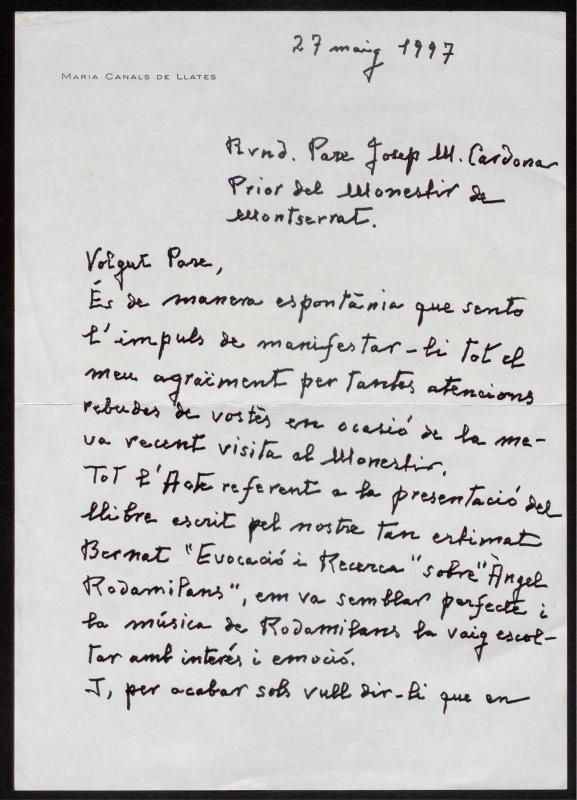 27 maig 1997
MARIA CANALS DE LLATES
Rvnd. Pare Josep M. Cardona
Prior del Monestir de
Montserrat.
Volgut Pare,
És de manera espontània que sento
l'impuls de manifestar-li tot el
meu agraïment per tantes atencions
rebudes de vostès en ocasió de la me-
va recent visita al Monestir.
Tot l'Acte referent a la presentació del
llibre escrit pel nostre tan estimat
Bernat "Evocació i Recerca "sobre" Àngel
Rodamilans", em va semblar perfecte i
la música de Rodamilans la vaig escol-
tar amb interés i emoció.
I, per acabar sols vull dir-li que en